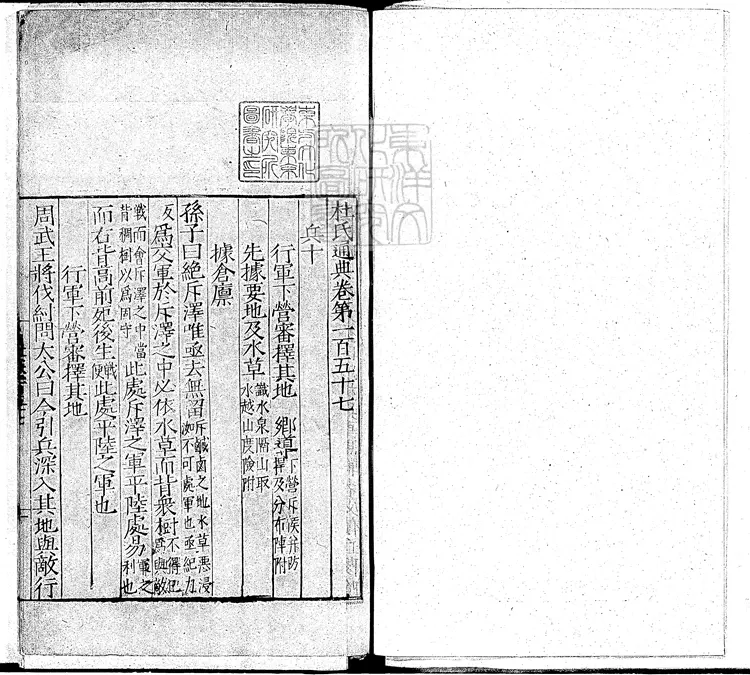 杜氏通典卷第一百五十七
兵十
行軍下營審擇其地 鄉導下營斥候并防捍及分布陣附
先據要地及水草識水泉隔山取水越山度險附
據倉廩
孫子曰絶斥澤唯亟去無留斥鹹鹵之地水草惡浸洳不可處軍也亟紀力
反爲交軍於斥澤之中必依水草而背衆樹不得已與敵
戰而會斥澤之中當背稠樹以爲固守此處斥澤之軍平陸處易軍之利也
而右背高前死後生戰便此處平陸之軍也
行軍下營審擇其地
周武王將伐紂問太公曰今引兵深入其地與敵行
東方文化學院東京研究所圖書之印